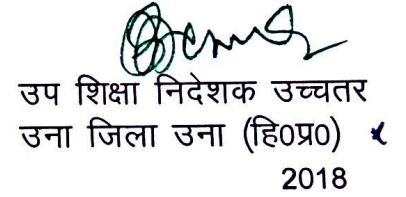 उप शिक्षा निदेशक उच्चतर
उना जिला उना (हि०प्र०)
2018